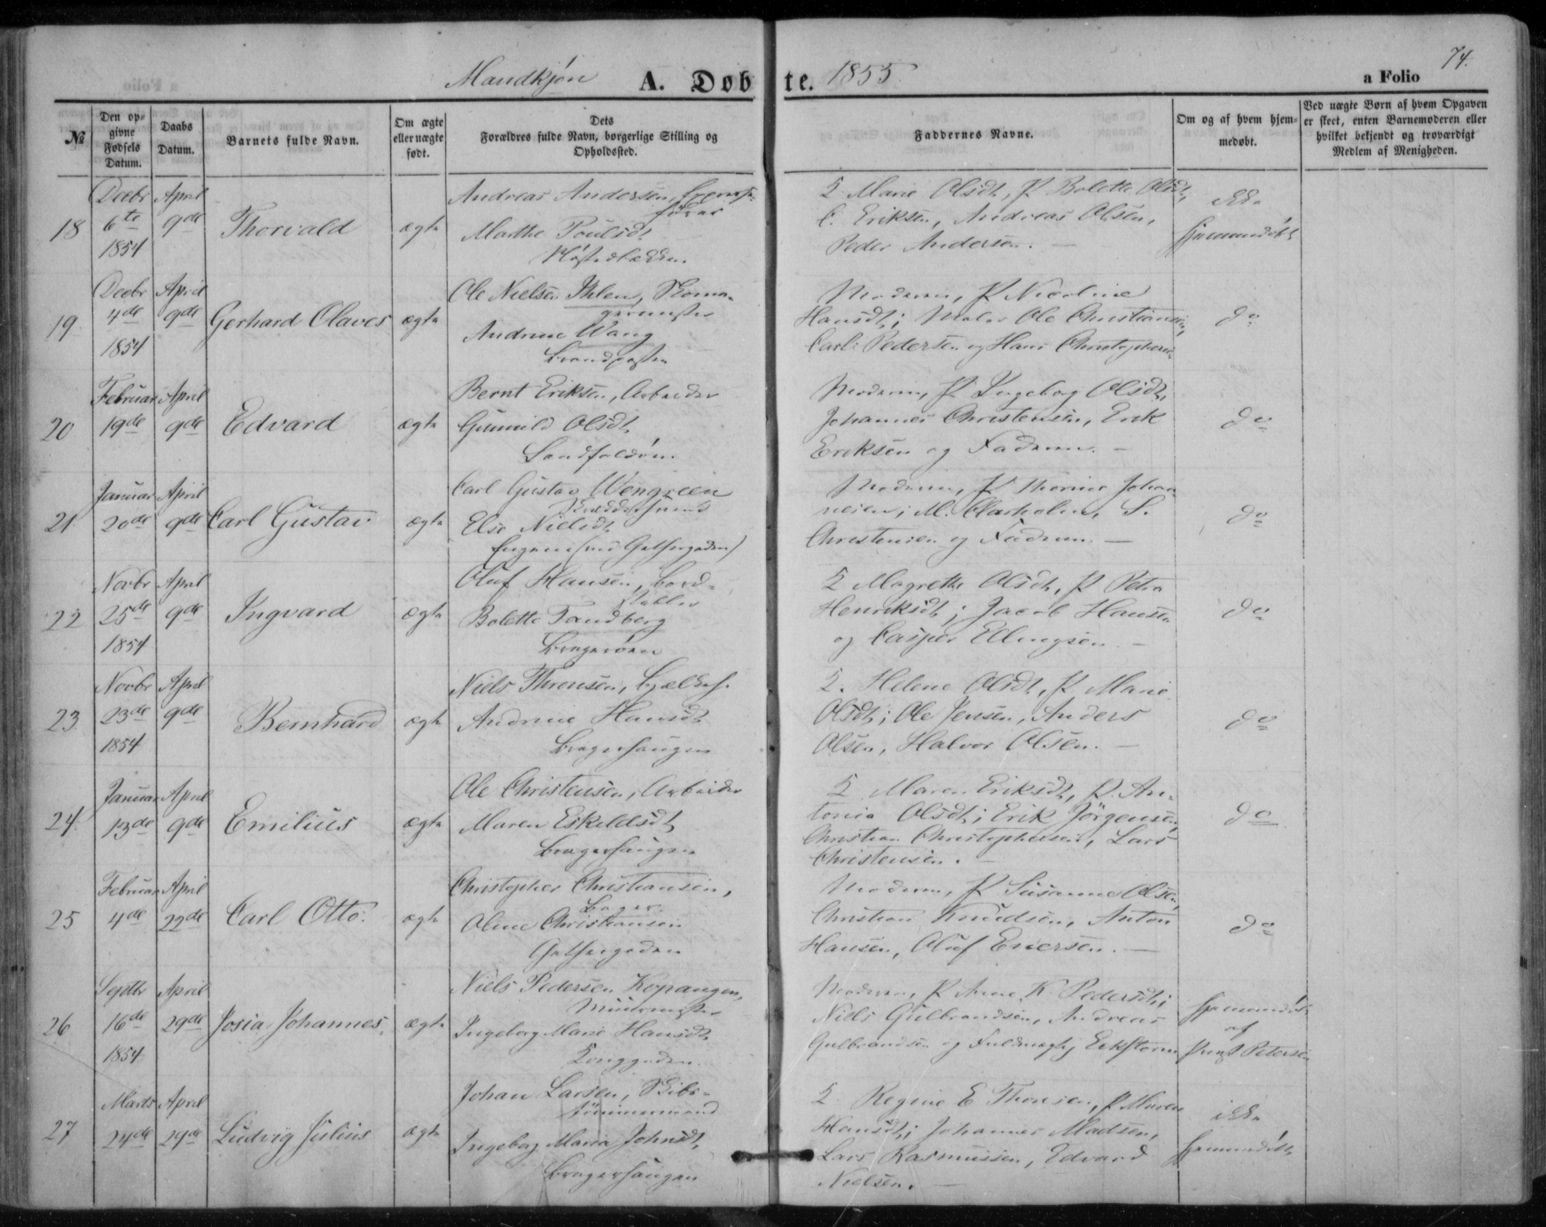 Mandkjøn A. Døbte. 1855.
74.
a Folio
№
Den opgivne Fødsels Datum.
Daabs Datum.
Barnets fulde Navn.
Om ægte eller uægte født.
Dets Forældres fulde Navn, borgerlige Stilling og Opholdssted.
Faddernes Navne.
Om og af hvem hjemmedøbt.
Ved uægte Børn af hvem Opgaven er skeet, enten Barnemoderen eller hvilket bekjendt og troværdigt Medlem af Menigheden.
18 Decbr 6te 1854 April 9de Thorvald ægte
Andreas Andersen,
Marthe Poulsdt
F Marie Olsdt, P Bolette Olsdt,
C. Eriksen, Andreas Olsen,
Peder Andersen. —
ikke
hjemmedøbt
19 Decbr 4de 1854 April 9de Gerhard Olaves ægte
Ole Nielsen Ihlen, Skoma-
germester
Andrine Wang
Moderen, P Nicoline
Hansdt; Maler Ole Christiansen,
Carl Pedersen og Hans Christophersen
do
20 Februar 19de April 9de Edvard ægte
Bernt Eriksen, Arbeider
Gunnild Olsdt
Landfaldøen
Moderen, P Ingebog Olsdt,
Johannes Christensen, Erik
Eriksen og Faderen. —
do
21 Januar 20de April 9de Carl Gustav ægte
Carl Gustav Wengreen
Else Nielsdt
Engene (ved Gjetergaden)
Moderen, P Thorine Johan
S.
Christensen og Faderen. —
do
22 Novbr 25de 1854 April 9de Ingvard ægte
Oluf Hansen, Bord-
stabler
Bolette Tandberg
Bragerøen
F Magrethe Olsdt, P Petra
Henriksdt; Jacob Hansen
og Casper Ellingsen. —
do
23 Novbr 23de 1854 April 9de Bernhard ægte
Niels Thronsen,
Andrine Hansdt
Bragerhaugen
F. Helene Olsdt, P Marie
Olsdt; Ole Jensen, Anders
Olsen, Halvor Olsen. —
do
24. Januar 13de April 9de Emilius ægte
Ole Christensen, Arbeider
Maren Eskildsdt
Bragerhaugen
F Maren Eriksdt, P An-
tonia Olsdt; Erik Jörgensen,
Christian Christophersen, Lars
Christensen. —
do
25 Februar 4de April 22de Carl Otto. ægte
Christopher Christiansen,
Bager
Oline Christiansen
Moderen, P Susanne Olsen,
Christian Knudsen, Anton
Hansen, Oluf Enersen. —
do
26 Septbr 16de 1854 April 29de Josia Johannes. ægte
Niels Pedersen Kopangen,
Muurmester
Ingeborg Marie Hansdt
Tonggaden
Moderen, P Anne K. Pedersdt;
Niels Gulbrandsen, Andreas
Gulbrandsen og Fuldmægtig Eckstorm
hjemmedøbt
af
Petersen
27 Marts 24de April 29de Ludvig Julius ægte
Johan Larsen, Skibs-
tømmermand
Ingebog Maria Johnsdt
Bragerhaugen
F Regine E Thoresen, P Maren
Hansdt; Johannes Madsen,
Lars Rasmussen, Edvard
Nielsen. —
ikke
hjemmedøbt